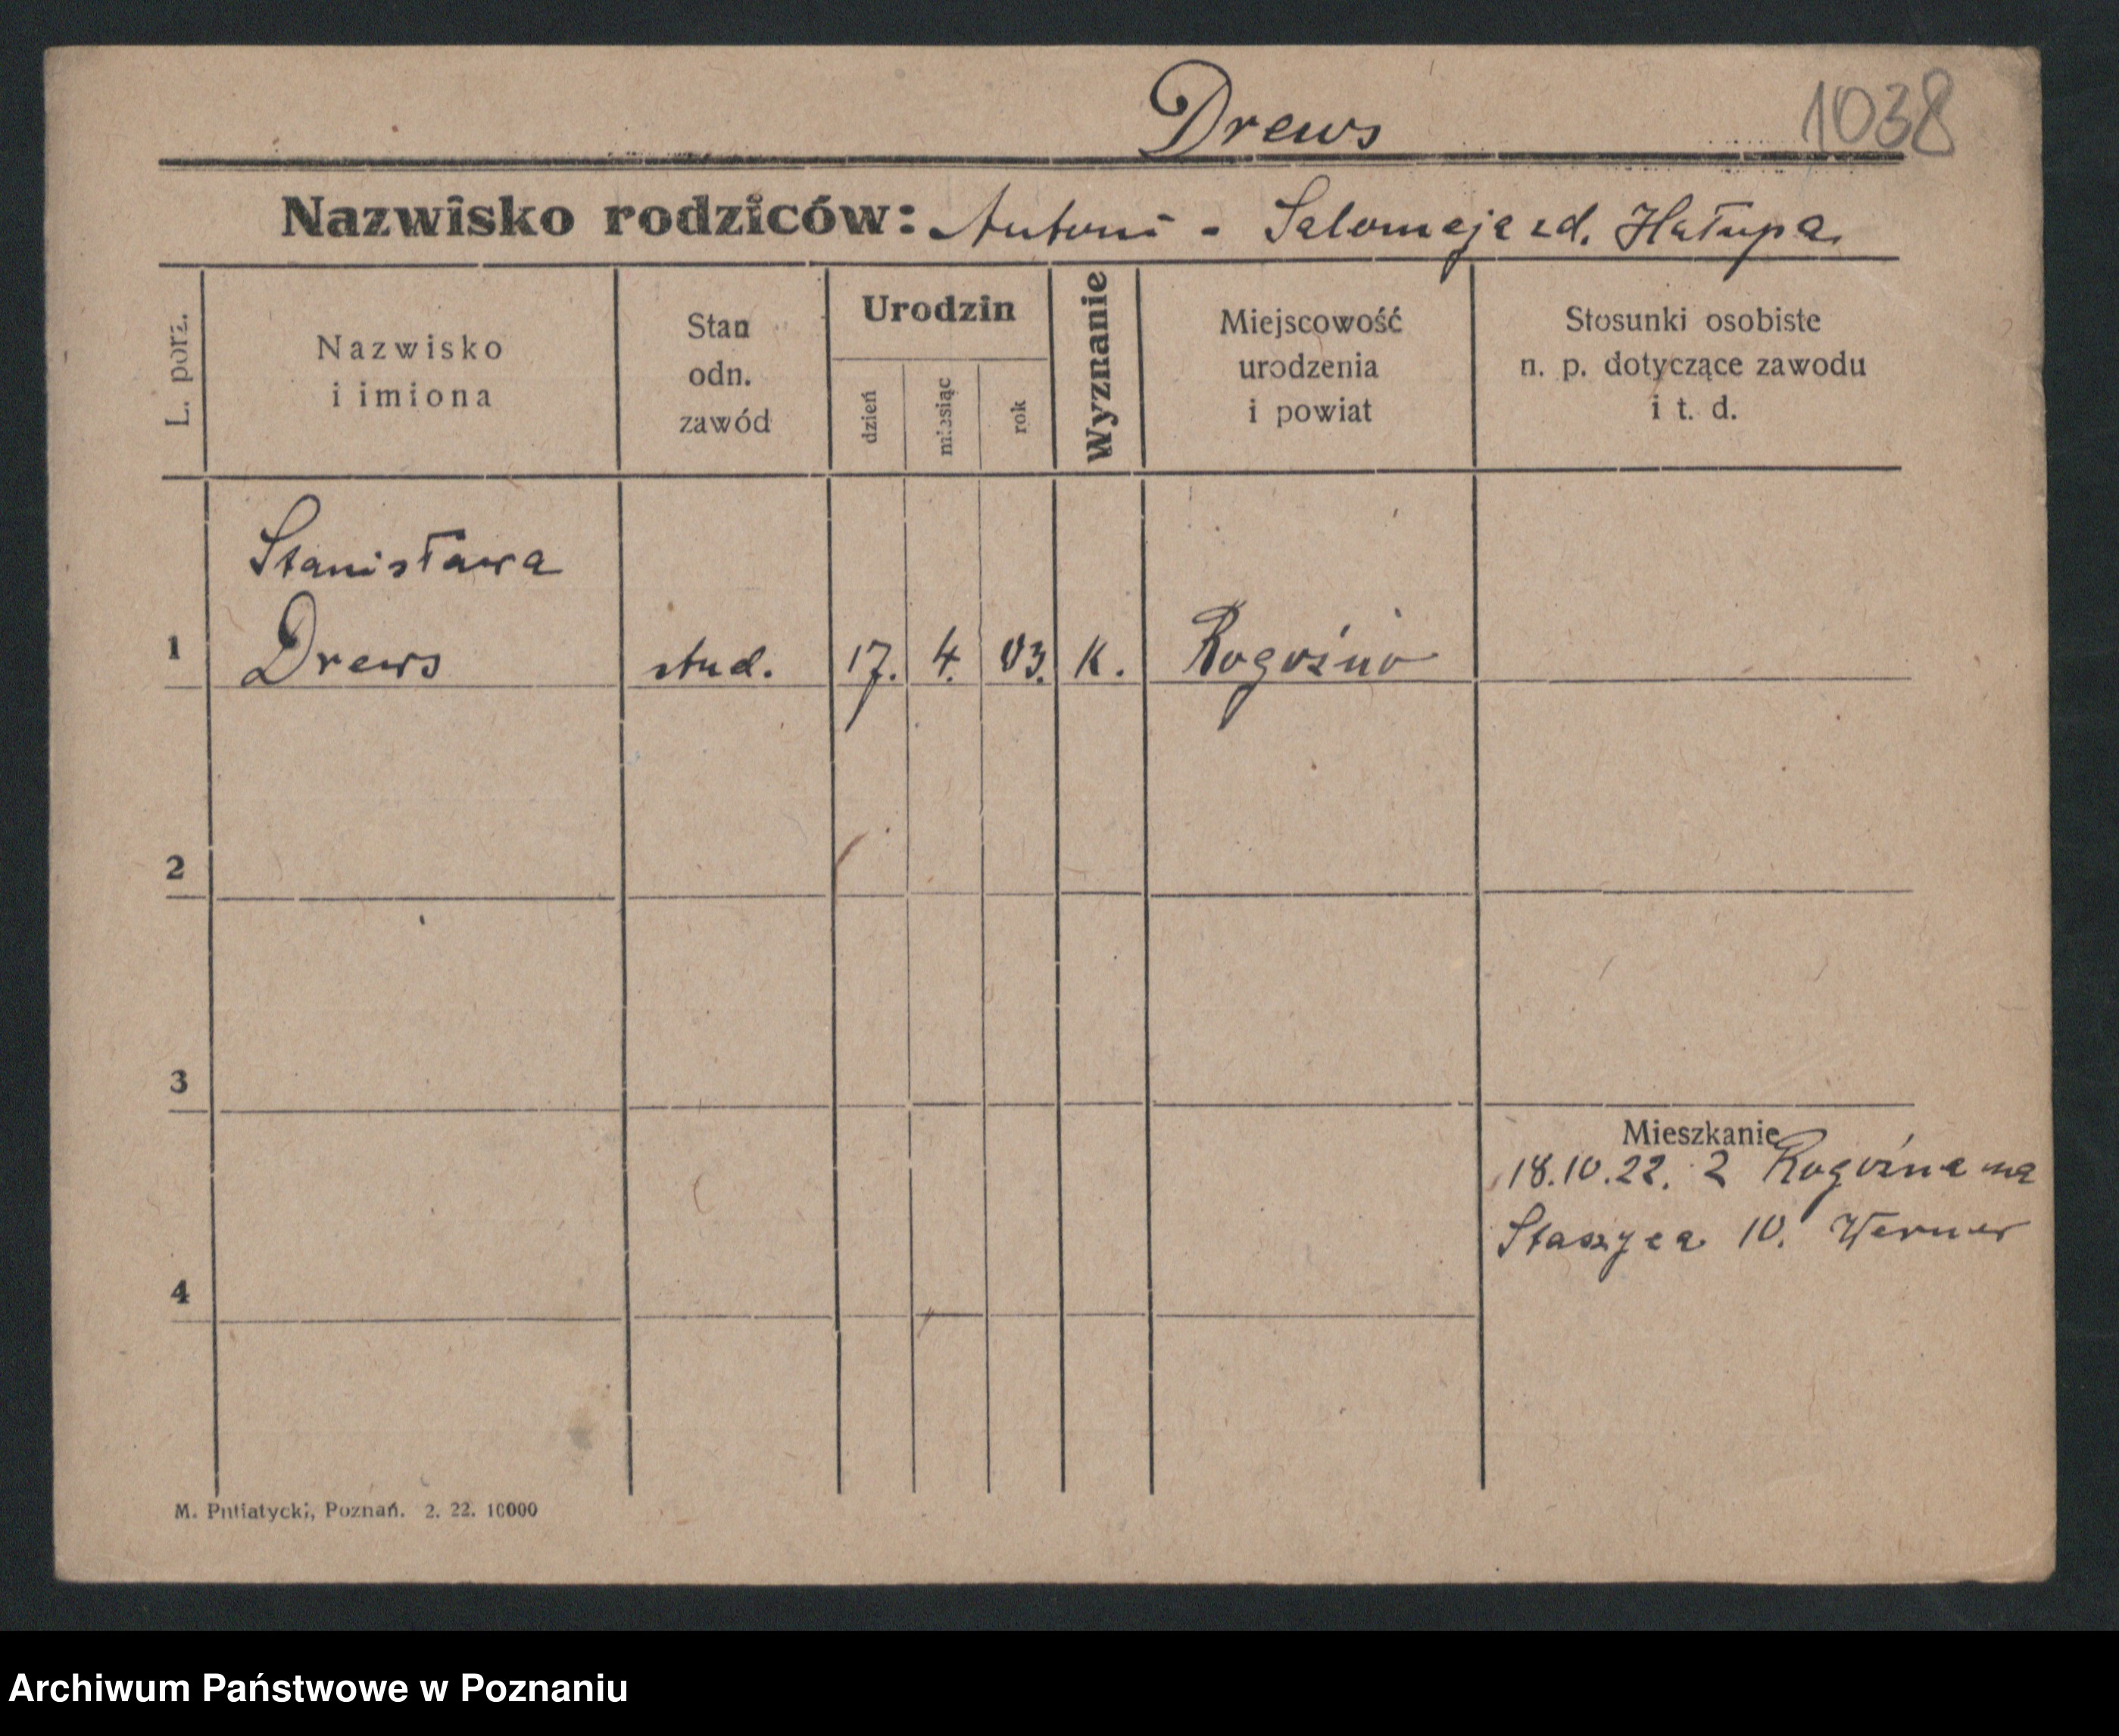 Drews
1038
Nazwisko rodziców: Antoni - Salomeja zd. Hałupa
L. porz.
Nazwisko
i imiona
Stan
odn.
zawód
Urodzin
dzień
miesiąc
rok
Wyznanie
Miejscowość
urodzenia
i powiat
Stosunki osobiste
n. p. dotyczące zawodu
i t. d.
Stanisława
1 Drews stud. 17. 4. 03. K. Rogoźno
2
3
Mieszkanie
18.10.22. z Rogoźna na
Staszyca 10. Werner
4
M. Putiatycki, Poznań. 2. 22. 10000
Archiwum Państwowe w Poznaniu